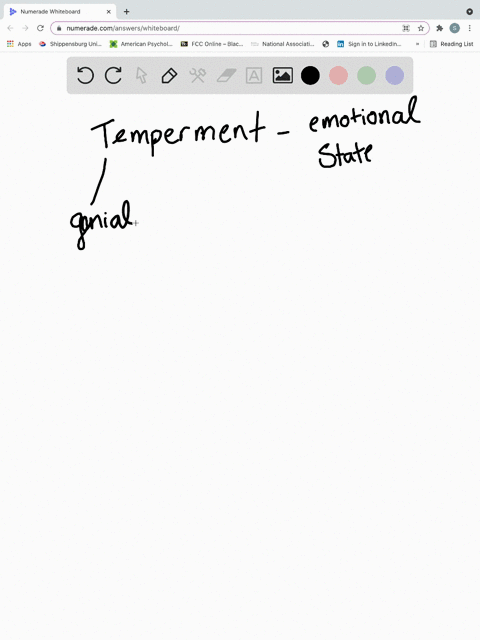 Numerade Whiteboard
numerade.com/answers/whiteboard/
S
Apps
Shippensburg Uni...
American Psychol...
FCC Online – Blac...
National Associati...
Sign in to LinkedIn...
»
Reading List
A
Temperment - emotional
State
genial